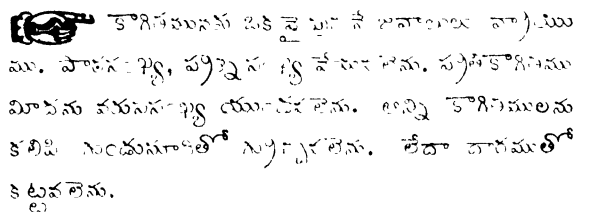 కాగితమునకు ఒక ప్రై పున నే జవాబులు వ్రాయు
ము. పాఠసంఖ్య, ప్రశ్నసంఖ్య వేయవలెను. ప్రతికాగితము
మీదను వరుససంఖ్య యుండవలెను. అన్ని కాగితములను
కలిపి గుండుసూదితో గ్రుచ్చవలెను. లేదా దారముతో
కట్టవలెను.